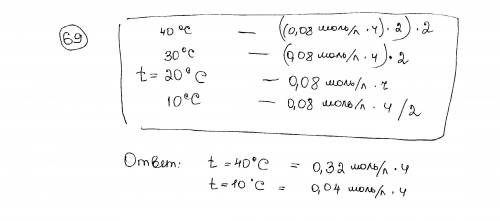 69
40°C — ((0,08 моль/л · ч) · 2) · 2
30°C — (0,08 моль/л · ч) · 2
t = 20°C — 0,08 моль/л · ч
10°C — 0,08 моль/л · ч / 2
Ответ: t = 40°C = 0,32 моль/л · ч
t = 10°C = 0,04 моль/л · ч